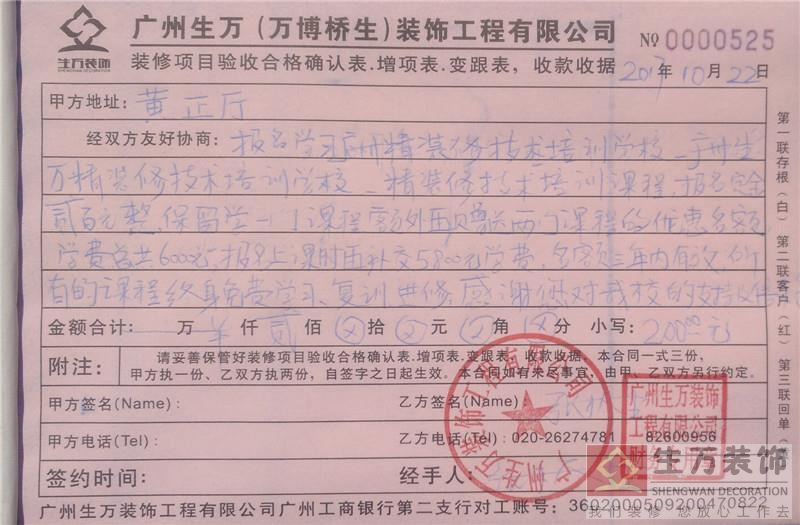 生万装饰
SHENGWAN DECORATION
广州生万(万博桥生)装饰工程有限公司
№ 0000525
装修项目验收合格确认表.增项表.变跟表，收款收据
2017年10月22日
甲方地址：黄正厅
经双方友好协商：报名学习广州精装修技术培训学校-广州生
万精装修技术培训学校-精装修技术培训课程,报名定金
贰百元整,保留学一门课程额外再赠送两门课程的优惠名额
学费总共6000元,报名上课时再补交5800元学费,名额三年内有效,所
有的课程终身免费学习、复训进修,感谢您对我校的支持
金额合计： 万 仟 贰 佰 拾 元 角 分 小写：200.00元
附注：
请妥善保管好装修项目验收合格确认表.增项表.变跟表，收款收据。本合同一式三份，
甲方执一份、乙双方执两份，自签字之日起生效。本合同如有未尽事宜：由甲、乙双方另行约定。
甲方签名(Name)：
乙方签名(Name)
甲方电话(Tel)：
乙方电话(Tel)：020-26274781 82600956
签约时间：
经手人：
广州生万装饰工程有限公司广州工商银行第二支行对工账号：3602000509200470822
第一联存根(白) 第二联客户(红) 第三联回单
广州生万装饰工程有限公司
广州生万装饰
工程有限公司
生万装饰
SHENGWAN DECORATION
我们装修 您放心工作去